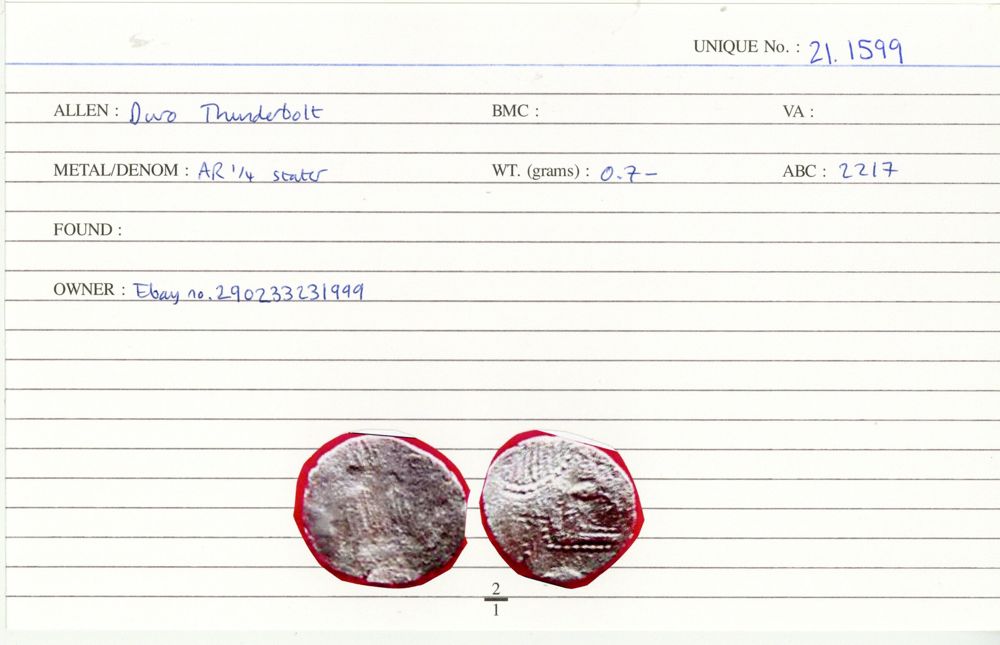 UNIQUE No. : 21.1599
ALLEN : Duro Thunderbolt BMC : VA :
METAL/DENOM : AR 1/4 stater WT. (grams) : 0.7- ABC : 2217
FOUND :
OWNER : Ebay no. 290233231999
2
1